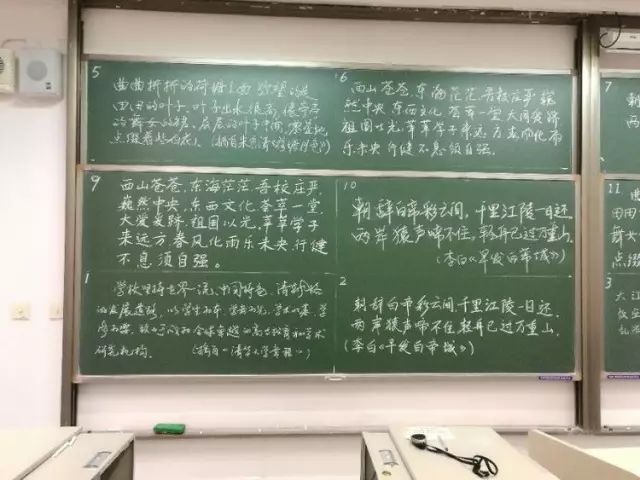 5
曲曲折折的荷塘上面,弥望的是
田田的叶子。叶子出水很高,像亭亭
的舞女的裙。层层的叶子中间,零星地
点缀着些白花。(摘自朱自清《荷塘月色》)
6
西山苍苍,东海茫茫,吾校庄严,巍
然中央,东西文化,荟萃一堂,大同爰跻,
祖国以光,莘莘学子来远方,春风化雨
乐未央,行健不息须自强。
9
西山苍苍,东海茫茫,吾校庄严,
巍然中央,东西文化,荟萃一堂,
大爱爰跻,祖国以光,莘莘学子
来远方,春风化雨乐未央,行健
不息须自强。
10
朝辞白帝彩云间,千里江陵一日还。
两岸猿声啼不住,轻舟已过万重山。
(李白《早发白帝城》)
1
学校坚持世界一流、中国特色、清华
的发展道路,
研究机构。(摘自《清华大学章程》)
2
朝辞白帝彩云间,千里江陵一日还。
两岸猿声啼不住,轻舟已过万重山。
(李白《早发白帝城》)
7
11
田田
舞女
点缀
3
大江
故垒
乱石